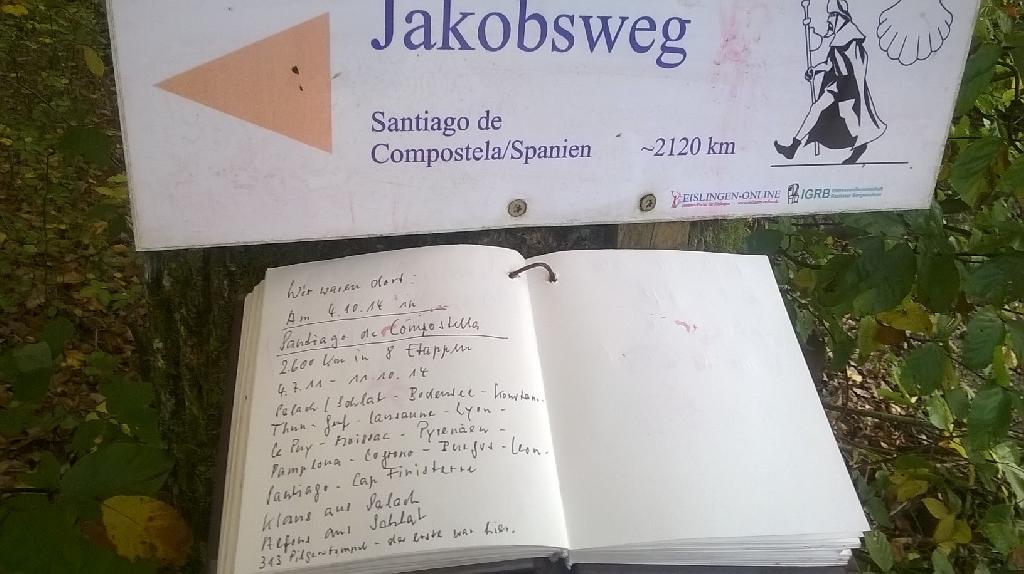 Jakobsweg
Santiago de
Compostela/Spanien ~2120 km
EISLINGEN-ONLINE IGRB
Wir waren dort:
Am 4.10.14 in
Santiago de Compostella
2600 km in 8 Etappen
4.7.11 - 11.10.14
Salach / Schlat - Bodensee - Konstan.
Thun - Genf - Lausanne - Lyon -
Le Puy - Moissac - Pyrenäen -
Pamplona - Logrono - Burgos - Leon -
Santiago - Cap Finisterre
Klaus aus Salach
Alfons aus Schlat
313 Pilgerstempel - der erste war hier.